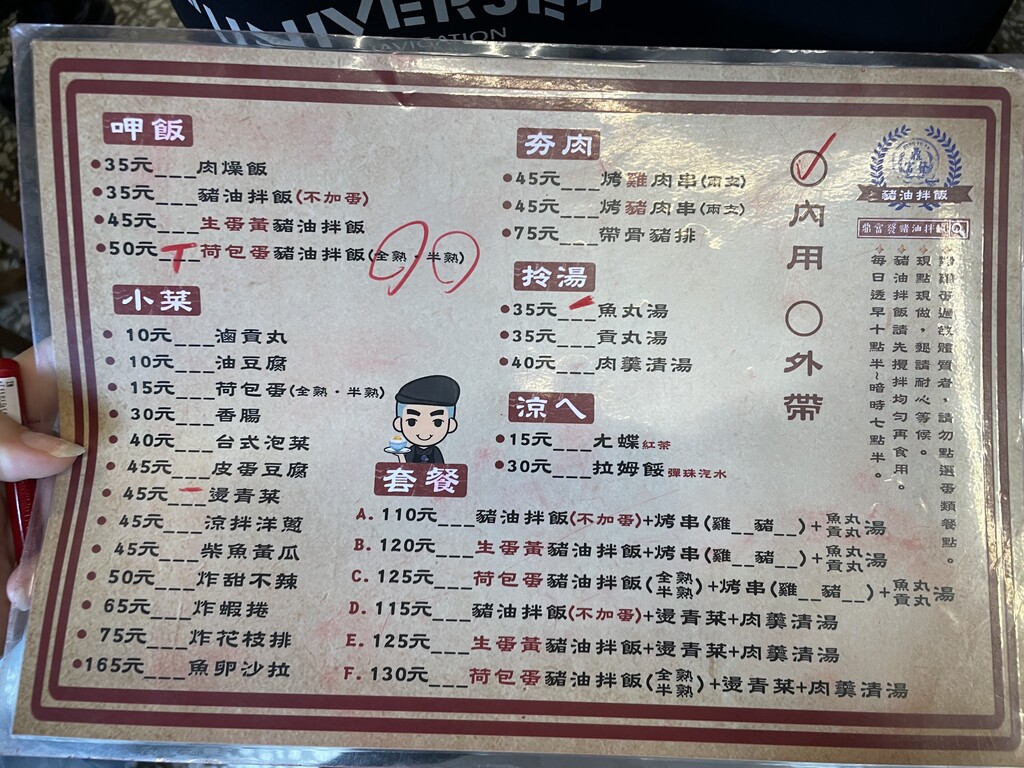 UNIVERSE
NAVIGATION
呷飯
35元___肉燥飯
35元___豬油拌飯(不加蛋)
45元___生蛋黃豬油拌飯
50元___荷包蛋豬油拌飯(全熟・半熟)
小菜
10元___滷貢丸
10元___油豆腐
15元___荷包蛋(全熟・半熟)
30元___香腸
40元___台式泡菜
45元___皮蛋豆腐
45元___燙青菜
45元___涼拌洋蔥
45元___柴魚黃瓜
50元___炸甜不辣
65元___炸蝦捲
75元___炸花枝排
165元___魚卵沙拉
夯肉
45元___烤雞肉串(兩支)
45元___烤豬肉串(兩支)
75元___帶骨豬排
拎湯
35元___魚丸湯
35元___貢丸湯
40元___肉羹清湯
涼ㄟ
15元___尢蝶紅茶
30元___拉姆餒彈珠汽水
套餐
A. 110元___豬油拌飯(不加蛋)+烤串(雞__豬__)+魚丸貢丸湯
B. 120元___生蛋黃豬油拌飯+烤串(雞__豬__)+魚丸貢丸湯
C. 125元___荷包蛋豬油拌飯(全熟半熟)+烤串(雞__豬__)+魚丸貢丸湯
D. 115元___豬油拌飯(不加蛋)+燙青菜+肉羹清湯
E. 125元___生蛋黃豬油拌飯+燙青菜+肉羹清湯
F. 130元___荷包蛋豬油拌飯(全熟半熟)+燙青菜+肉羹清湯
內用
外帶
豬油拌飯
鼎富發豬油拌飯
對雞蛋過敏體質者，請勿點選蛋類餐點。
現點現做，懇請耐心等候。
豬油拌飯請先攪拌均勻再食用。
每日透早十點半~暗時七點半。